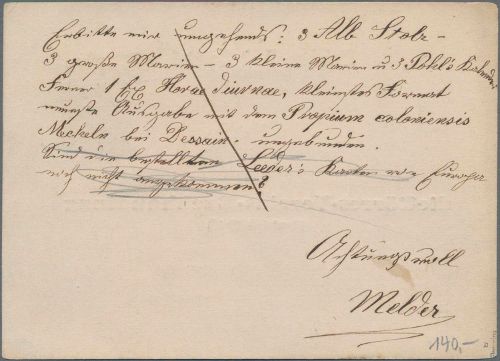 Erbitte mir umgehends: 3 Alb Stolz-
3 große Marien- 3 kleine Marien u 3 Kalender
Ferner 1 Ex Horae diurnae, kleinstes Format
neueste Ausgabe mit dem Proprium coloniensis
Mecheln bei Dessain, ungebunden.
Sind die bestellten Leeder's Karten von Europa
noch nicht angekommen?
Achtungsvoll
Melder
140,-